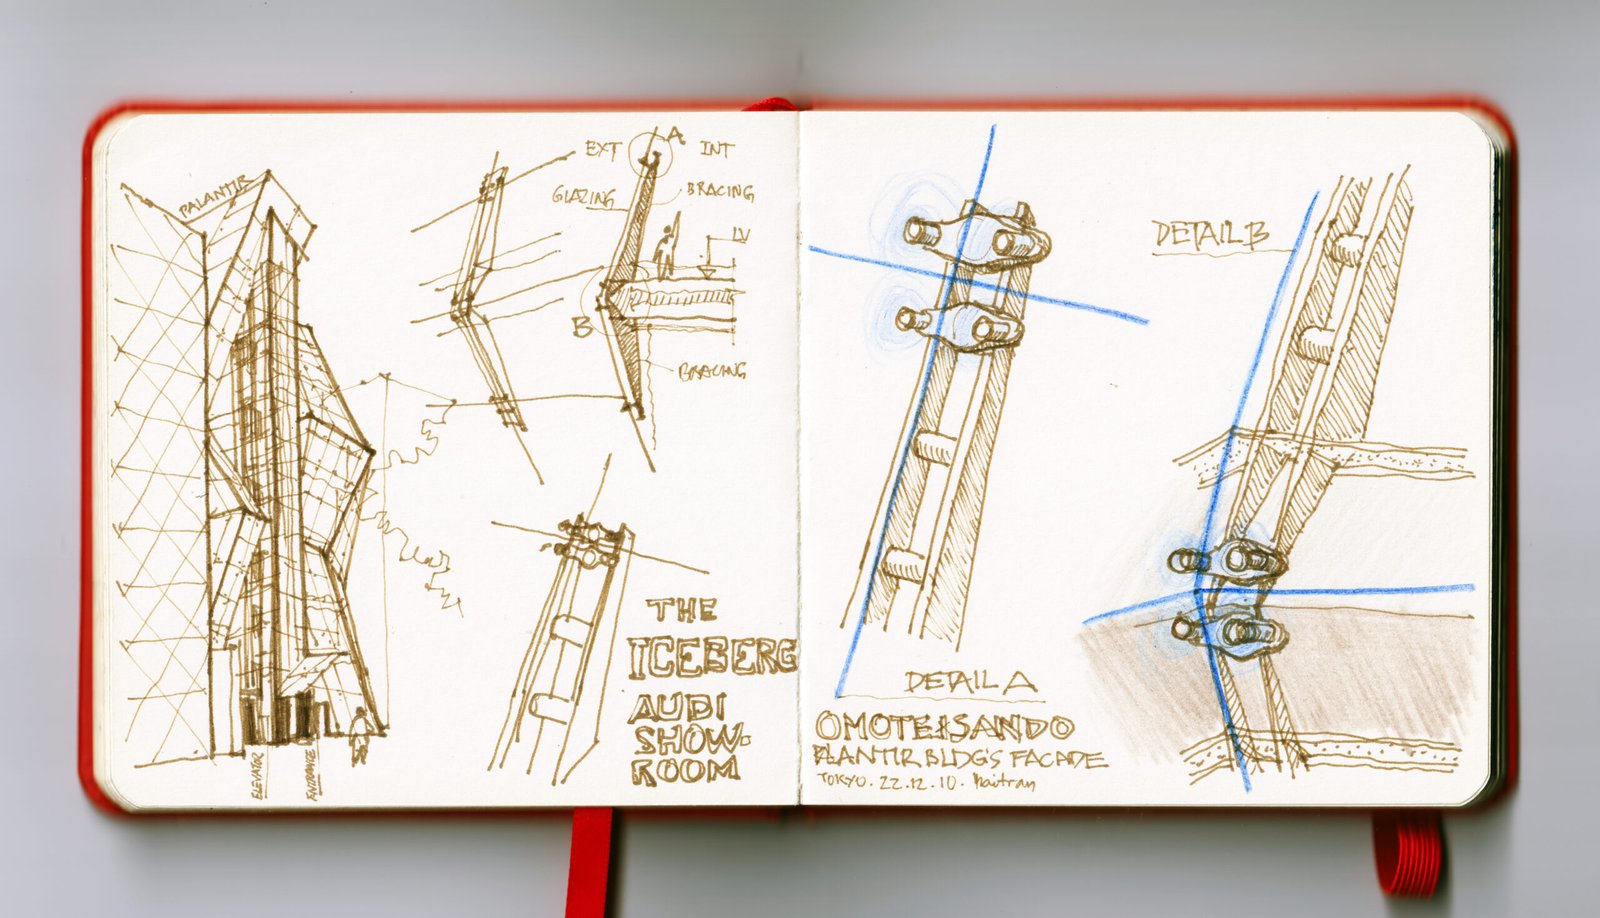 PALANTIR
EXT
A
INT
GLAZING
BRACING
LV
B
BRACING
ELEVATOR
ENTRANCE
THE
ICEBERG
AUDI
SHOW-
ROOM
DETAIL A
OMOTEISANDO
PLANTIR BLDG'S FACADE
TOKYO. 22.12.10. Haitran
DETAIL B